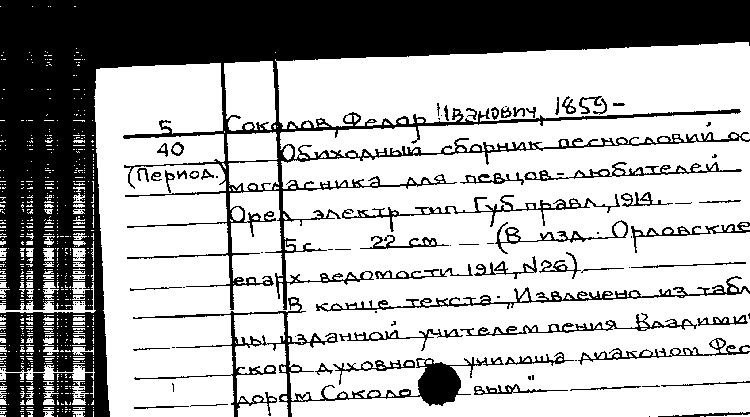 5 Соколов, Федор Иванович, 1859-
40 Обиходный сборник песнословий ос
(Период.) могласника для певцов-любителей
Орел, электр тип. Губ правл., 1914.
5 с. 22 см (В изд.: Орловские
епарх. ведомости 1914, №26)
В конце текста: „Извлечено из табл
цы, изданной учителем пения Владими
ского духовного училища диаконом Фео
дором Соколо вым."